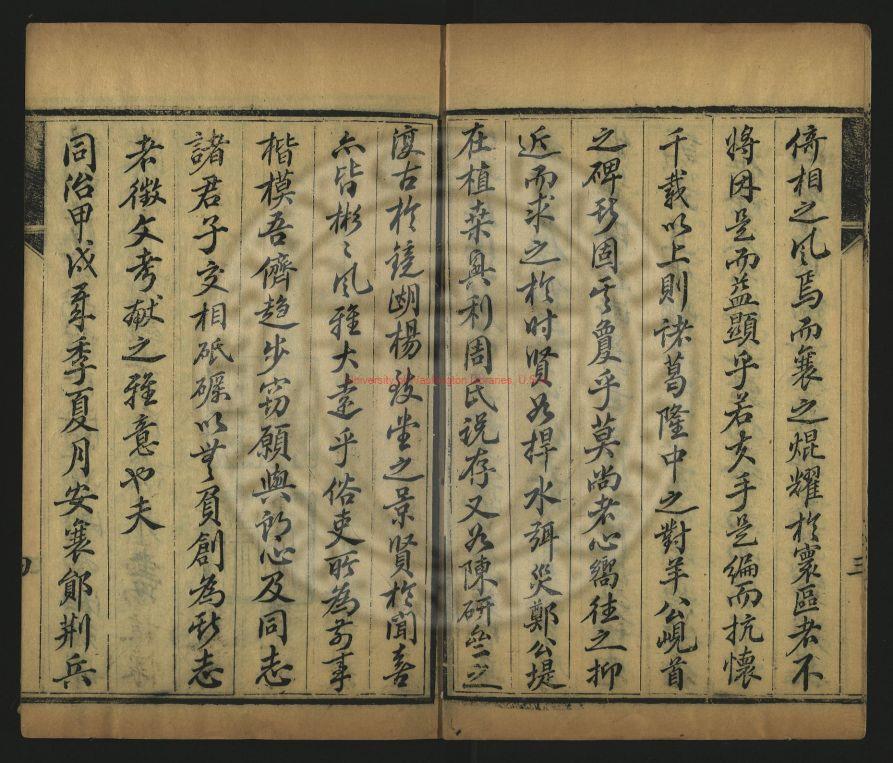 倚相之風焉而襄之焜耀於寰區者不
將因是而益顯乎若夫手是編而抗懷
千載以上則諸葛隆中之對羊公峴首
之碑形固云敻乎莫尚者心嚮往之抑
近而求之於时賢如捍水弭災鄭公堤
在植桑興利周氏说存又如陳研之
復古於鏡湖楊致堂之景賢於聞喜
亦皆彬〻風雅大遠乎俗吏所為前事
楷模吾儕趨步竊願與郎心及同志
諸君子交相砥礪以無負創為新志
者徵文考獻之雅意也夫
同治甲戌年季夏月安襄鄖荆兵
三
University of Washington Libraries, U.S.A.